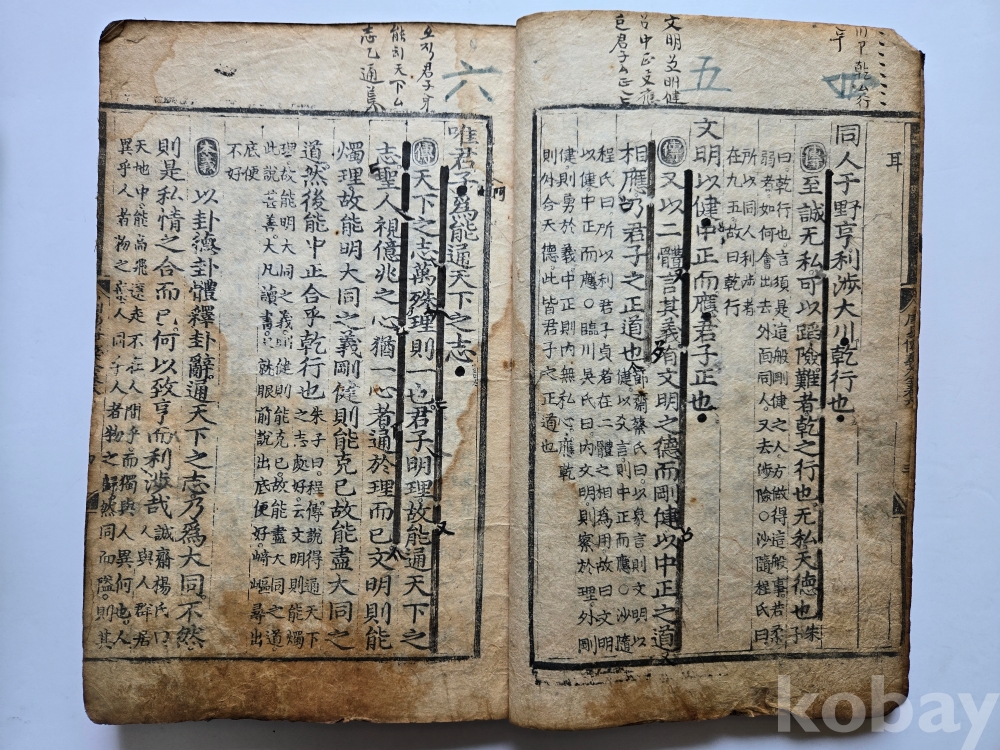 四
同人于野亨利涉大川乾行也
傳 至誠无私可以蹈險難者乾之行也无私天德也 朱子
曰乾行也言須是這般剛健之人方做得這般事若柔
弱者如何會出去外面同人又去涉險○沙隨程氏曰
所以同人利涉者
在九五故曰乾行
五
文明以健中正而應君子正也
傳 又以二體言其義有文明之德而剛健以中正之道
相應乃君子之正道也 節齋蔡氏曰以彖言則文明
以健以爻言則中正而應○沙隨
程氏曰所以利君子貞者在二體之相為用故曰文明
以健中正而應○臨川吳氏曰内文明則察於理外剛
健則勇於義中正則内無私心應乾
則外合天德此皆君子之正道也
六
唯君子爲能通天下之志
傳 天下之志萬殊理則一也君子明理故能通天下之
志聖人視億兆之心猶一心者通於理而已文明則能
燭理故能明大同之義剛健則能克己故能盡大同之
道然後能中正合乎乾行也 朱子曰程傳說得通天下
之志處好云文明則能燭
理故能明大同之義剛健則能克己故能盡大同之道
此說甚善大凡讀書只就眼前說出底便好崎嶇尋出
底便
不好
本義 以卦德卦體釋卦辭通天下之志乃爲大同不然
則是私情之合而已何以致亨而利涉哉 誠齋楊氏曰
人與人群居
天地中能高飛遠走不在人間乎而獨與人異何也人
異乎人者物之棄同乎人者物之歸然同而隘則其
kobay